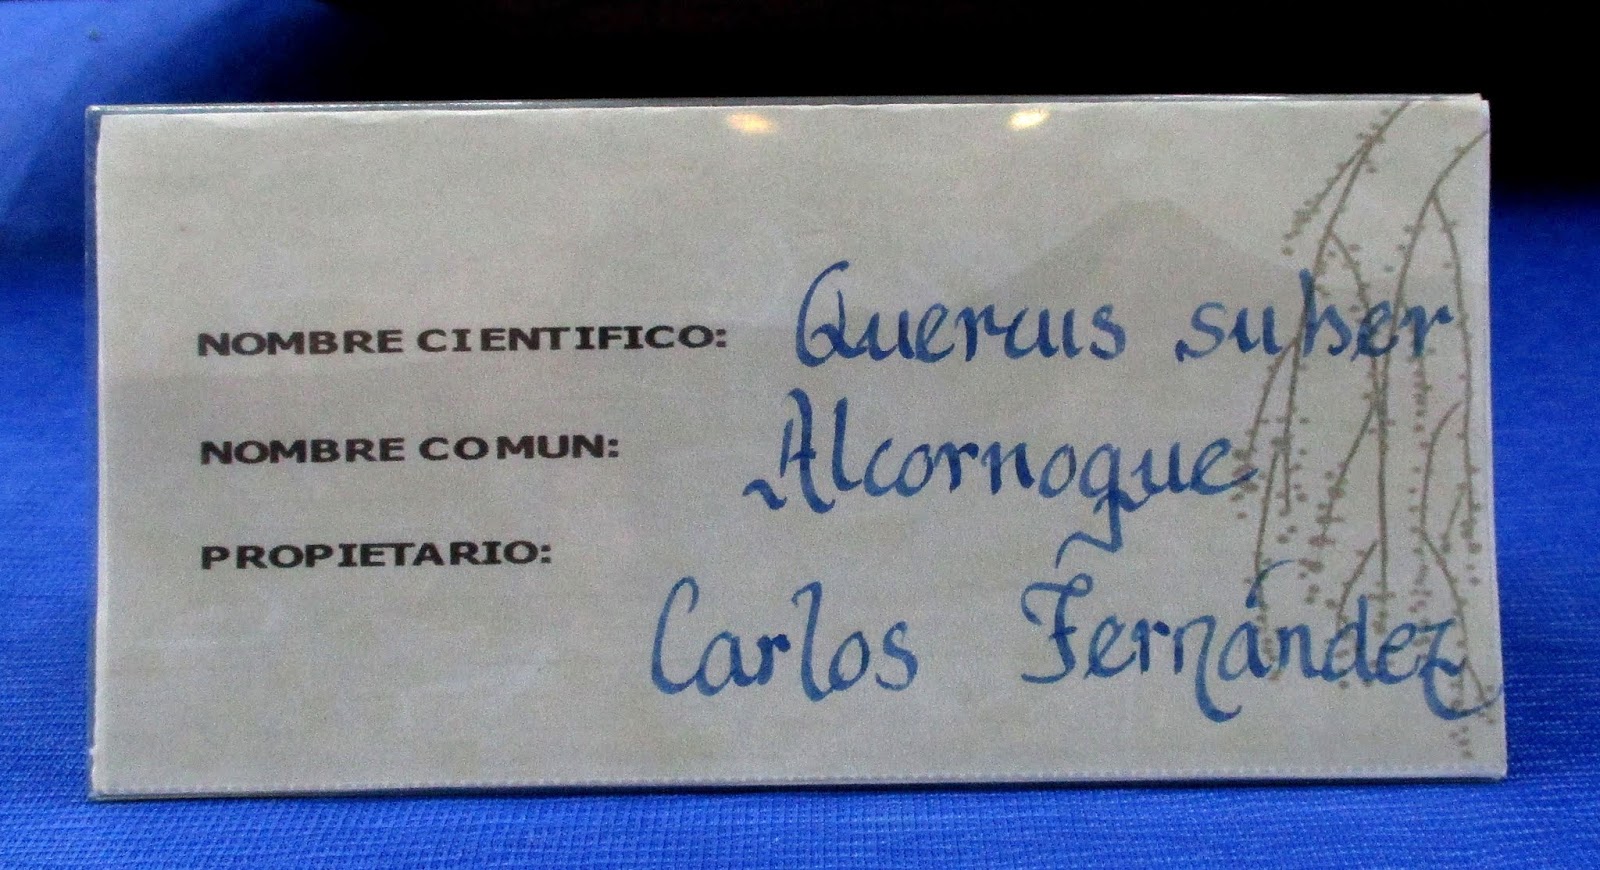 NOMBRE CIENTIFICO: Quercus suber
NOMBRE COMUN: Alcornoque
PROPIETARIO:
Carlos Fernández